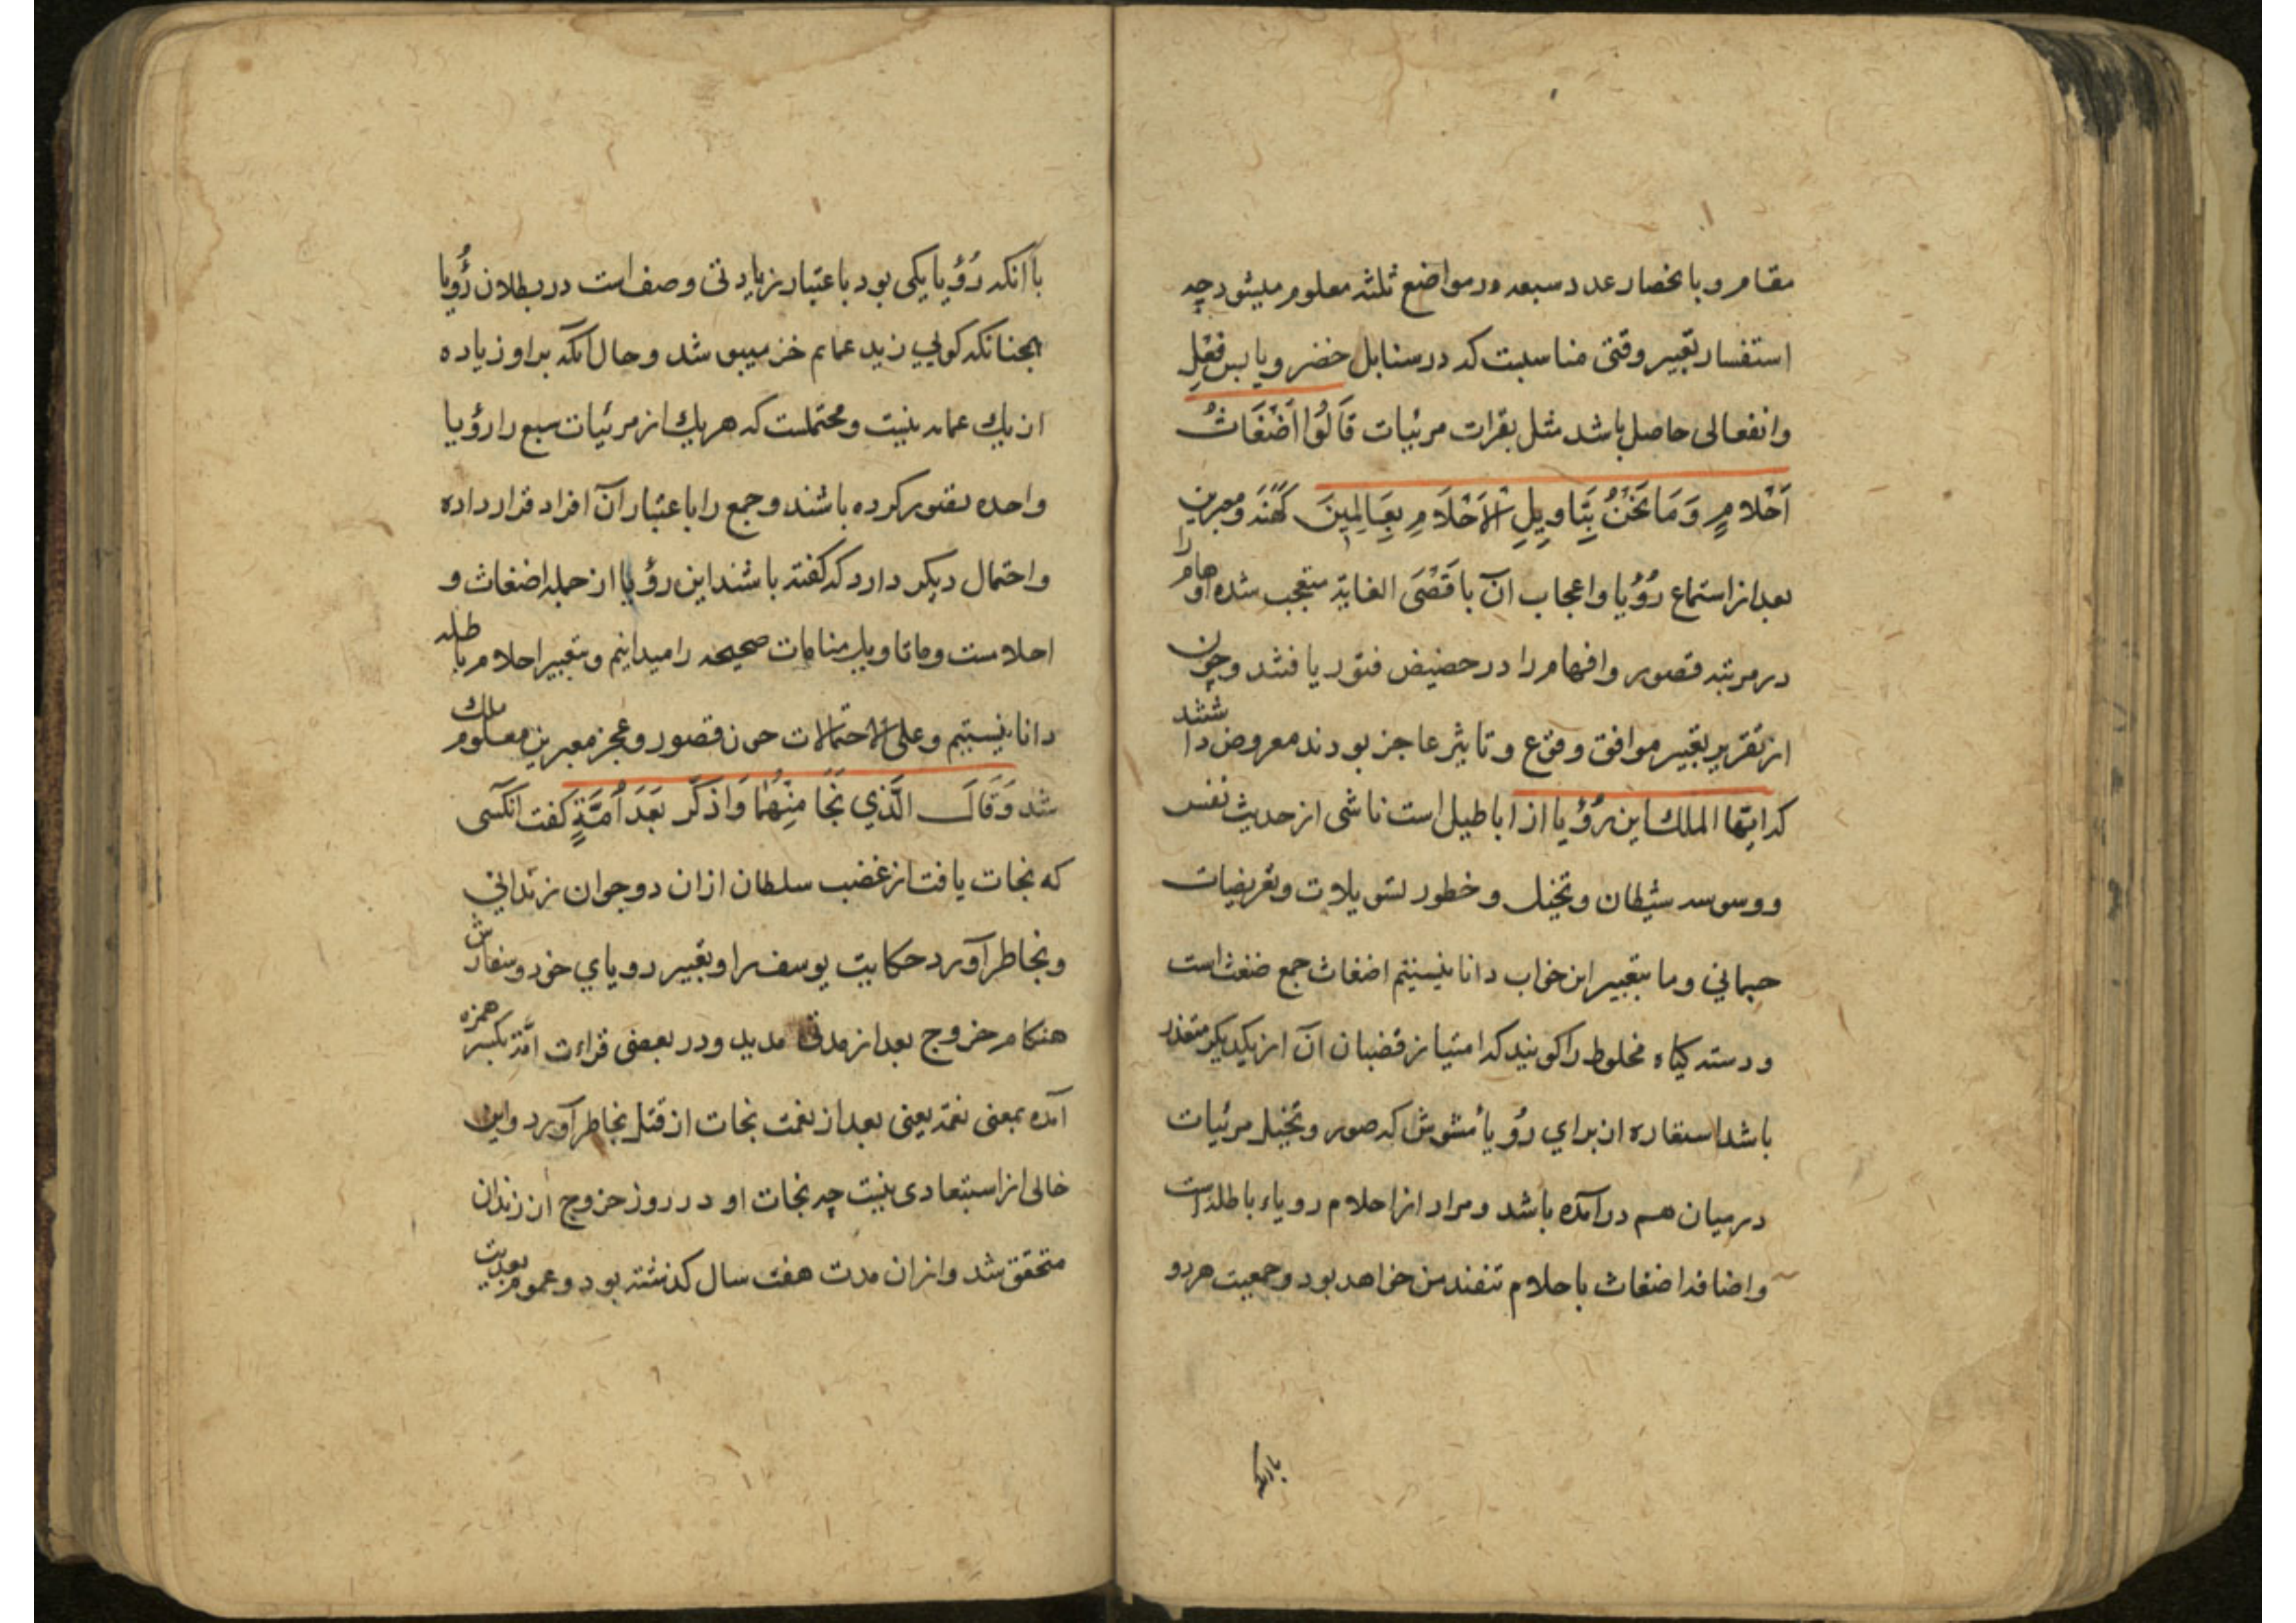 مقام و بانحصار عدد سبعه در مواضع ثلثه معلوم میشود چه
استفسار تعبیر وقتی مناسبت که در سنابل خضر و یابس فعل
وانفعالی حاصل باشد مثل بقرات مرئیات قَالُوا أَضْغَاثُ
أَحْلَامٍ وَمَا نَحْنُ بِتَاوِيلِ الْأَحْلَامِ بِعَالِمِينَ كَهَنَه و معبرین
بعد از استماع رُؤیا و اعجاب آن باقصی الغایة متعجب شده اوهام را
در مرتبه قصور و افهام را در حضیض فتور یافتند و چون
از تقریر تعبیر موافق وقوع و تاثیر عاجز بودند معروض داشتند
که ایها الملک این رؤیا از اباطیل است ناشی از حدیث نفس
و وسوسه شیطان و تخیل و خطور تسویلات و تعریضات
جسمانی و ما بتعبیر این خواب دانا نیستیم اضغاث جمع ضغث است
و دسته کیاه مخلوط را کویند که امتیاز قضبان آن از یکدیکر متعذر
باشد استعاره از برای رؤیا مشوش که صور و تخیل مرئیات
در میان هم درآمده باشد و مراد از احلام رویاء باطله است
و اضافه اضغاث باحلام خواهد بود و جمعیت هر دو
باانکه
باآنکه رُؤیا یکی بود باعتبار زیادتی وصف است در بطلان رُؤیا
همچنانکه کویی زید عمایم خز میپوشد و حال آنکه براو زیاده
از یک عمامه نیست و محتملست که هر یک از مرئیات سبع را رؤیا
واحده تصور کرده باشند و جمع را باعتبار آن افراد قرار داده
و احتمال دیکر دارد که کفته باشند این رؤیا از جمله اضغاث و
احلامست و ما تاویل منامات صحیحه را میدانیم و بتعبیر احلام باطله
دانا نیستیم و علی الاحتمالات چون قصور و عجز معبرین معلوم ملک
شد وَقَالَ الَّذِي نَجَا مِنْهُمَا وَادَّكَرَ بَعْدَ أُمَّةٍ کفت انکسی
که نجات یافت از غضب سلطان ازان دو جوان زندانی
و بخاطر آورد حکایت یوسف را و تعبیر رویای خود و سفارش
هنکام خروج بعد از مدتی مدید و در بعضی قراءت امّة بکسر همزه
آمده بمعنی نعمة یعنی بعد از نعمت نجات از قتل بخاطر آورد و این
خالی از استبعادی نیست چه نجات او در روز خروج از زندان
متحقق شد و ازان مدت هفت سال کذشته بود و عموم بعدیت